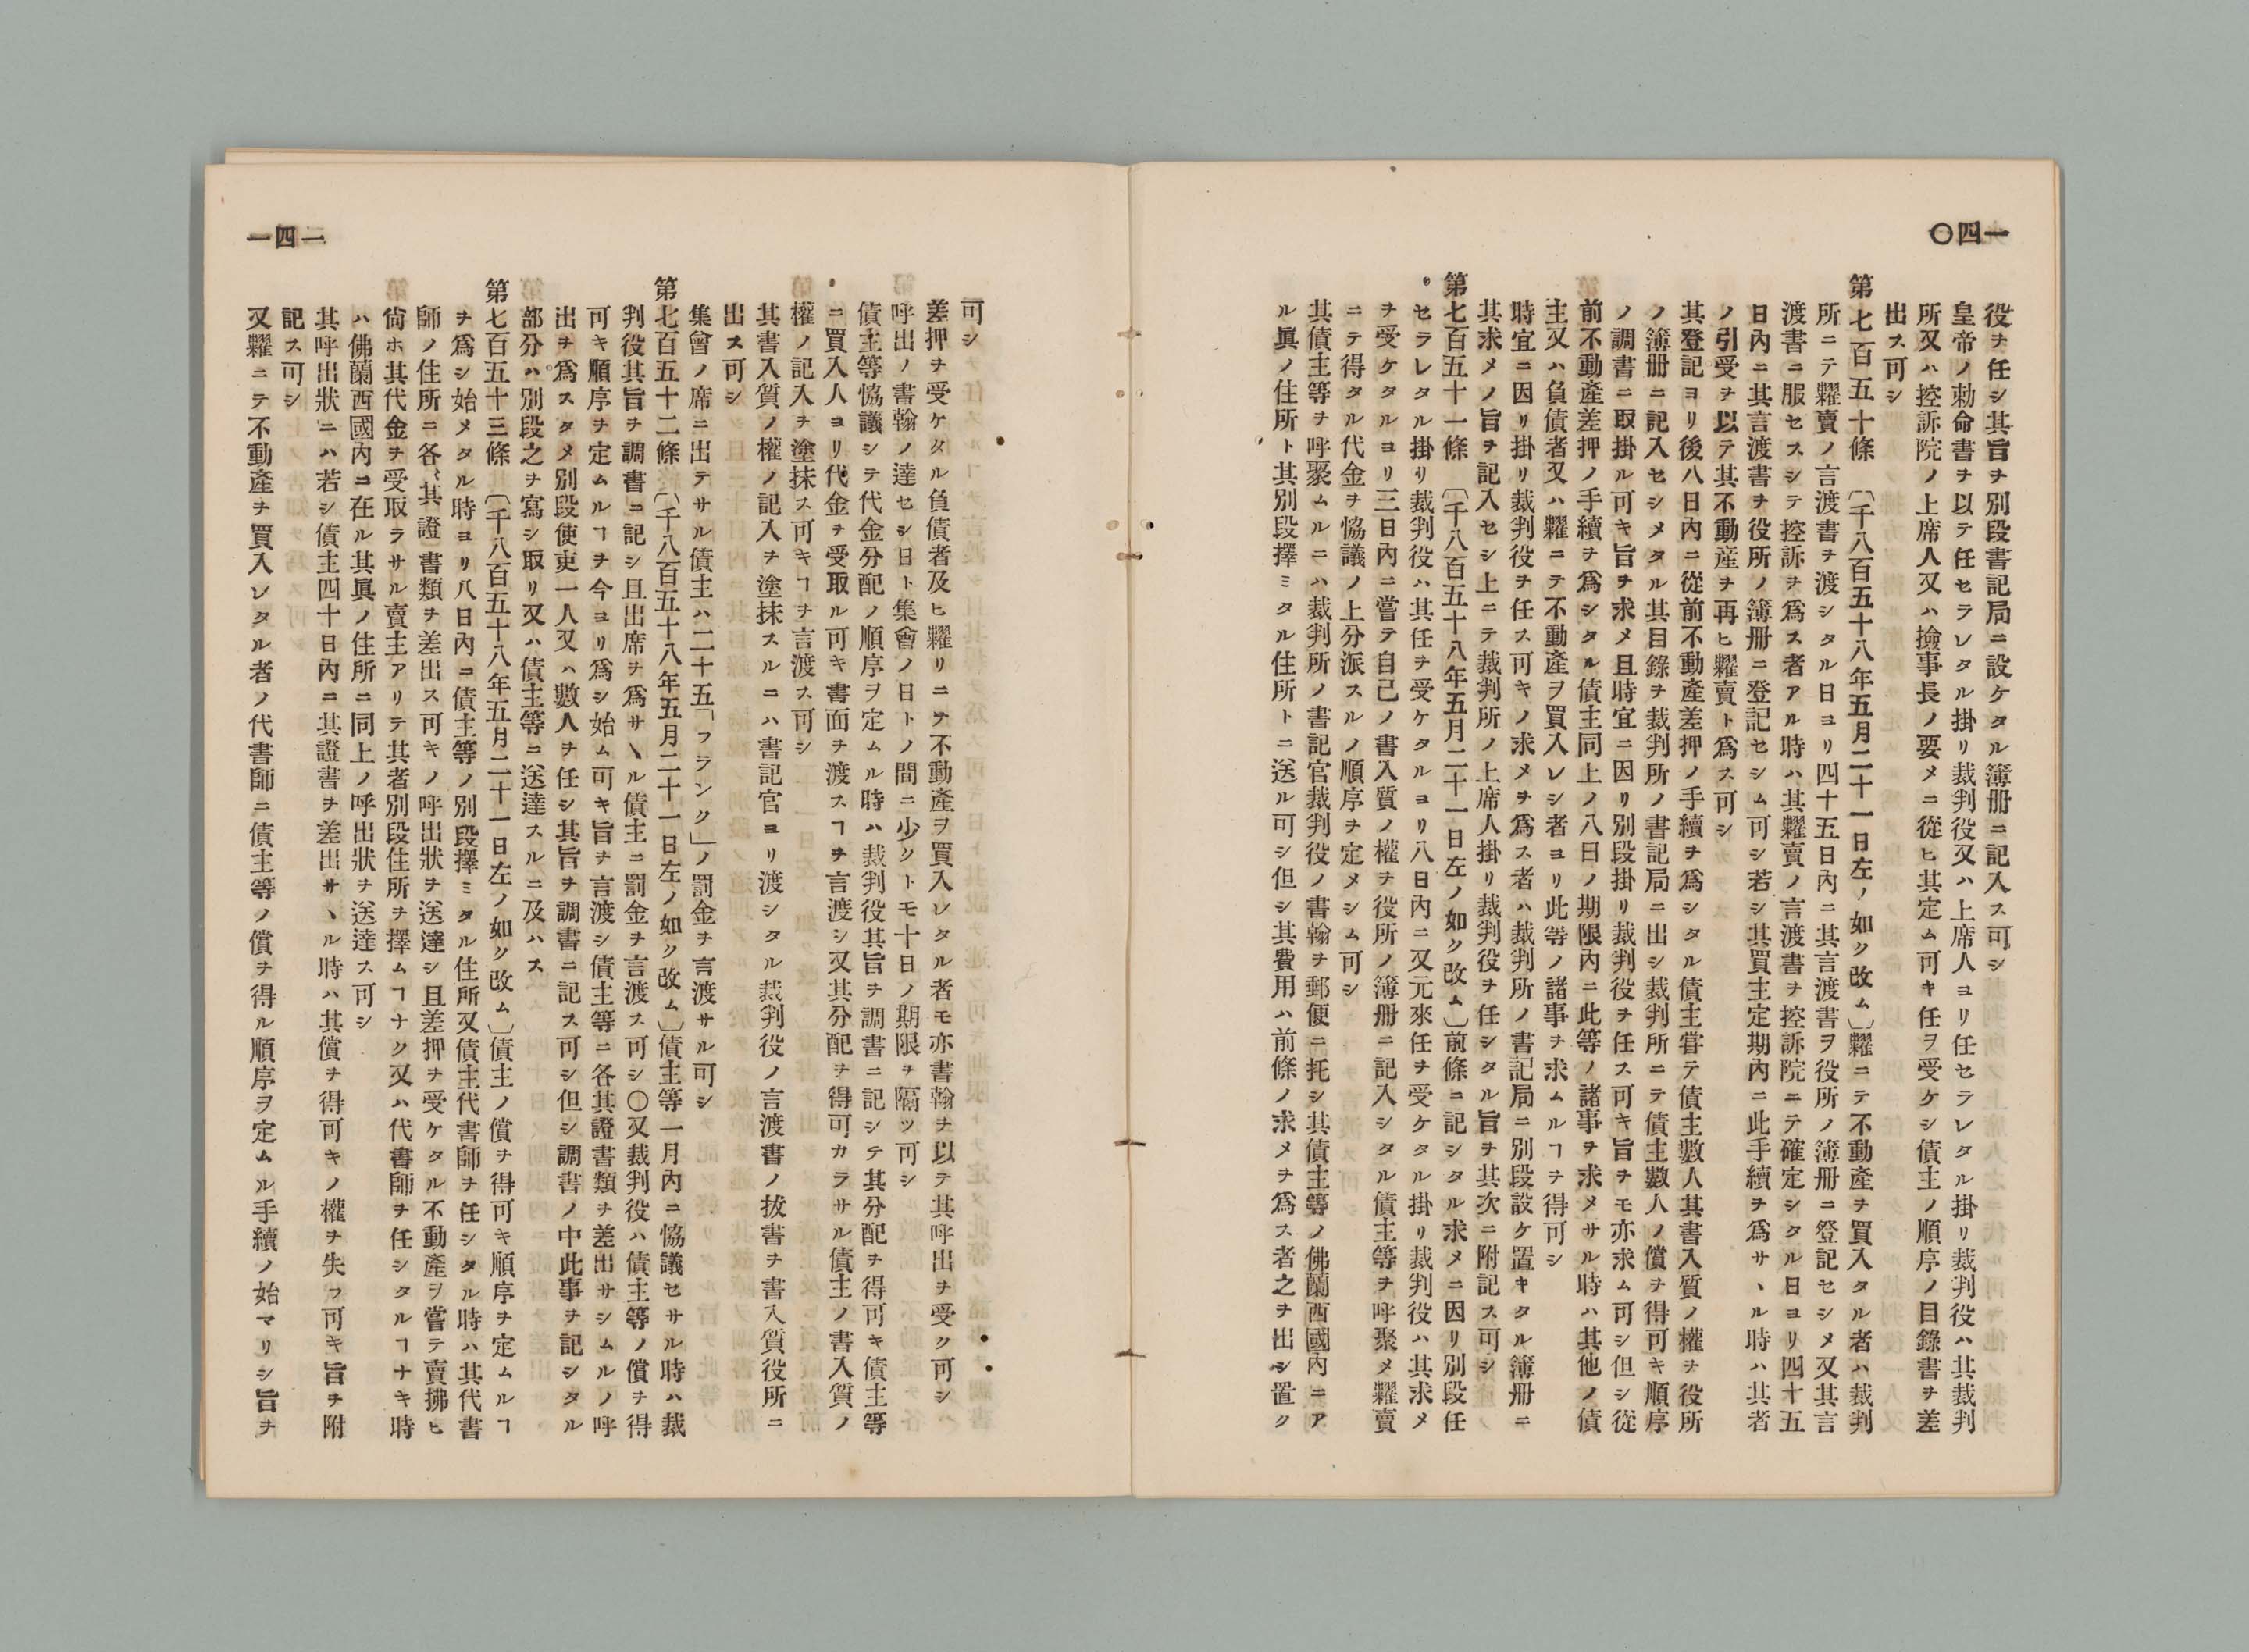 一四〇
役ヲ任シ其旨ヲ別段書記局ニ設ケタル簿册ニ記入ス可シ
皇帝ノ勅命書ヲ以テ任セラレタル掛リ裁判役又ハ上席人ヨリ任セラレタル掛リ裁判役ハ其裁判
所又ハ控訴院ノ上席人又ハ撿事長ノ要メニ從ヒ其定ム可キ任ヲ受ケシ債主ノ順序ノ目錄書ヲ差
出ス可シ
第七百五十條 〔千八百五十八年五月二十一日左ノ如ク改ム〕糶ニテ不動產ヲ買入タル者ハ裁判
所ニテ糶賣ノ言渡書ヲ渡シタル日ヨリ四十五日內ニ其言渡書ヲ役所ノ簿册ニ登記セシメ又其言
渡書ニ服セスシテ控訴ヲ爲ス者アル時ハ其糶賣ノ言渡書ヲ控訴院ニテ確定シタル日ヨリ四十五
日內ニ其言渡書ヲ役所ノ簿册ニ登記セシム可シ若シ其買主定期內ニ此手續ヲ爲サヽル時ハ其者
ノ引受ヲ以テ其不動產ヲ再ヒ糶賣ト爲ス可シ
其登記ヨリ後八日內ニ從前不動產差押ノ手續ヲ爲シタル債主嘗テ債主數人其書入質ノ權ヲ役所
ノ簿册ニ記入セシメタル其目錄ヲ裁判所ノ書記局ニ出シ裁判所ニテ債主數人ノ償ヲ得可キ順序
ノ調書ニ取掛ル可キ旨ヲ求メ且時宜ニ因リ別段掛リ裁判役ヲ任ス可キ旨ヲモ亦求ム可シ但シ從
前不動產差押ノ手續ヲ爲シタル債主同上ノ八日ノ期限內ニ此等ノ諸事ヲ求メサル時ハ其他ノ債
主又ハ負債者又ハ糶ニテ不動產ヲ買入レシ者ヨリ此等ノ諸事ヲ求ムルヿヲ得可シ
時宜ニ因リ掛リ裁判役ヲ任ス可キノ求メヲ爲ス者ハ裁判所ノ書記局ニ別段設ケ置キタル簿册ニ
其求メノ旨ヲ記入セシ上ニテ裁判所ノ上席人掛リ裁判役ヲ任シタル旨ヲ其次ニ附記ス可シ
第七百五十一條 〔千八百五十八年五月二十一日左ノ如ク改ム〕前條ニ記シタル求メニ因リ別段任
セラレタル掛リ裁判役ハ其任ヲ受ケタルヨリ八日內ニ又元來任ヲ受ケタル掛リ裁判役ハ其求メ
ヲ受ケタルヨリ三日內ニ嘗テ自己ノ書入質ノ權ヲ役所ノ簿册ニ記入シタル債主等ヲ呼聚メ糶賣
ニテ得タル代金ヲ恊議ノ上分派スルノ順序ヲ定メシム可シ
其債主等ヲ呼聚ムルニハ裁判所ノ書記官裁判役ノ書翰ヲ郵便ニ托シ其債主等ノ佛蘭西國內ニア
ル眞ノ住所ト其別段擇ミタル住所トニ送ル可シ但シ其費用ハ前條ノ求メヲ爲ス者之ヲ出シ置ク
一四一
可シ
差押ヲ受ケタル負債者及ヒ糶リニテ不動產ヲ買入レタル者モ亦書翰ヲ以テ其呼出ヲ受ク可シ
呼出ノ書翰ノ達セシ日ト集會ノ日トノ間ニ少クトモ十日ノ期限ヲ隔ツ可シ
債主等恊議シテ代金分配ノ順序ヲ定ムル時ハ裁判役其旨ヲ調書ニ記シテ其分配ヲ得可キ債主等
ニ買入人ヨリ代金ヲ受取ル可キ書面ヲ渡スヿヲ言渡シ又其分配ヲ得可カラサル債主ノ書入質ノ
權ノ記入ヲ塗抹ス可キヿヲ言渡ス可シ
其書入質ノ權ノ記入ヲ塗抹スルニハ書記官ヨリ渡シタル裁判役ノ言渡書ノ拔書ヲ書入質役所ニ
出ス可シ
集會ノ席ニ出テサル債主ハ二十五「フランク」ノ罰金ヲ言渡サル可シ
第七百五十二條 〔千八百五十八年五月二十一日左ノ如ク改ム〕債主等一月內ニ恊議セサル時ハ裁
判役其旨ヲ調書ニ記シ且出席ヲ爲サヽル債主ニ罰金ヲ言渡ス可シ〇又裁判役ハ債主等ノ償ヲ得
可キ順序ヲ定ムルヿヲ今ヨリ爲シ始ム可キ旨ヲ言渡シ債主等ニ各其證書類ヲ差出サシムルノ呼
出ヲ爲スタメ別段使吏一人又ハ數人ヲ任シ其旨ヲ調書ニ記ス可シ但シ調書ノ中此事ヲ記シタル
部分ハ別段之ヲ寫シ取リ又ハ債主等ニ送達スルニ及ハス
第七百五十三條 〔千八百五十八年五月二十一日左ノ如ク改ム〕債主ノ償ヲ得可キ順序ヲ定ムルヿ
ヲ爲シ始メタル時ヨリ八日內ニ債主等ノ別段擇ミタル住所又債主代書師ヲ任シタル時ハ其代書
師ノ住所ニ各〻其證書類ヲ差出ス可キノ呼出狀ヲ送達シ且差押ヲ受ケタル不動產ヲ嘗テ賣拂ヒ
尙ホ其代金ヲ受取ラサル賣主アリテ其者別段住所ヲ擇ムヿナク又ハ代書師ヲ任シタルヿナキ時
ハ佛蘭西國內ニ在ル其眞ノ住所ニ同上ノ呼出狀ヲ送達ス可シ
其呼出狀ニハ若シ債主四十日內ニ其證書ヲ差出サヽル時ハ其償ヲ得可キノ權ヲ失フ可キ旨ヲ附
記ス可シ
又糶ニテ不動產ヲ買入レタル者ノ代書師ニ債主等ノ償ヲ得ル順序ヲ定ムル手續ノ始マリシ旨ヲ